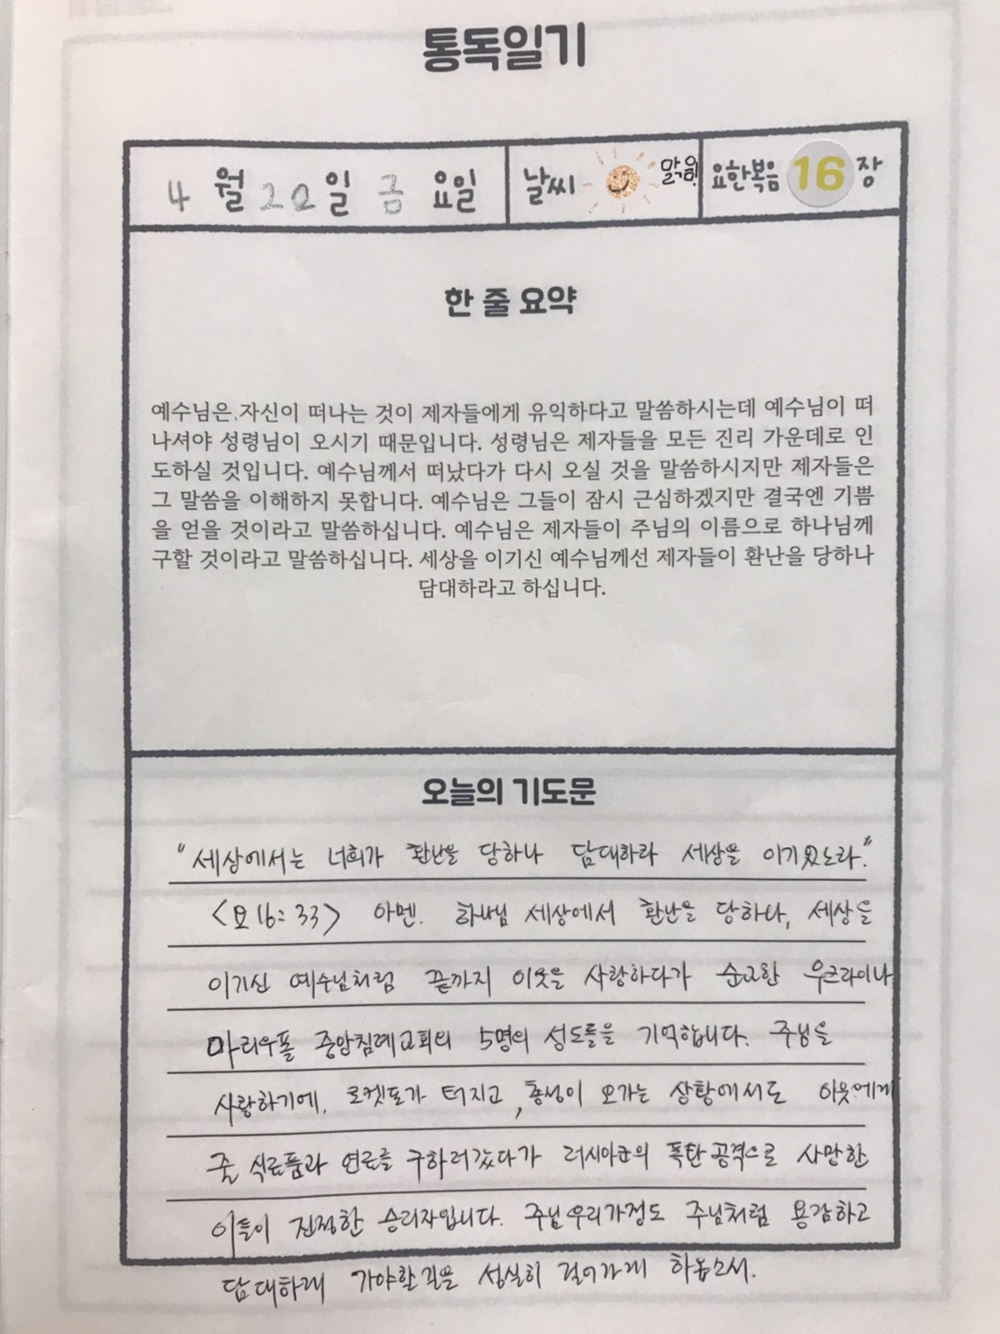 통독일기
4월 22일 금요일 날씨 맑음! 요한복음 16장
한 줄 요약
예수님은 자신이 떠나는 것이 제자들에게 유익하다고 말씀하시는데 예수님이 떠
나셔야 성령님이 오시기 때문입니다. 성령님은 제자들을 모든 진리 가운데로 인
도하실 것입니다. 예수님께서 떠났다가 다시 오실 것을 말씀하시지만 제자들은
그 말씀을 이해하지 못합니다. 예수님은 그들이 잠시 근심하겠지만 결국엔 기쁨
을 얻을 것이라고 말씀하십니다. 예수님은 제자들이 주님의 이름으로 하나님께
구할 것이라고 말씀하십니다. 세상을 이기신 예수님께선 제자들이 환난을 당하나
담대하라고 하십니다.
오늘의 기도문
"세상에서는 너희가 환난을 당하나 담대하라 세상을 이기었노라."
<요 16:33> 아멘. 하나님 세상에서 환난을 당하나, 세상을
이기신 예수님처럼 끝까지 이웃을 사랑하다가 순교한 우크라이나
마리우폴 중앙침례교회의 5명의 성도를을 기억합니다. 주님을
사랑하기에, 로켓포가 터지고, 총성이 오가는 상황에서도 이웃에게
줄 식료품과 연료를 구하러갔다가 러시아군의 폭탄공격으로 사망한
이들이 진정한 승리자입니다. 주님 우리가정도 주님처럼 용감하고
담대하게 가야할 길을 성실히 걸어가게 하옵소서.